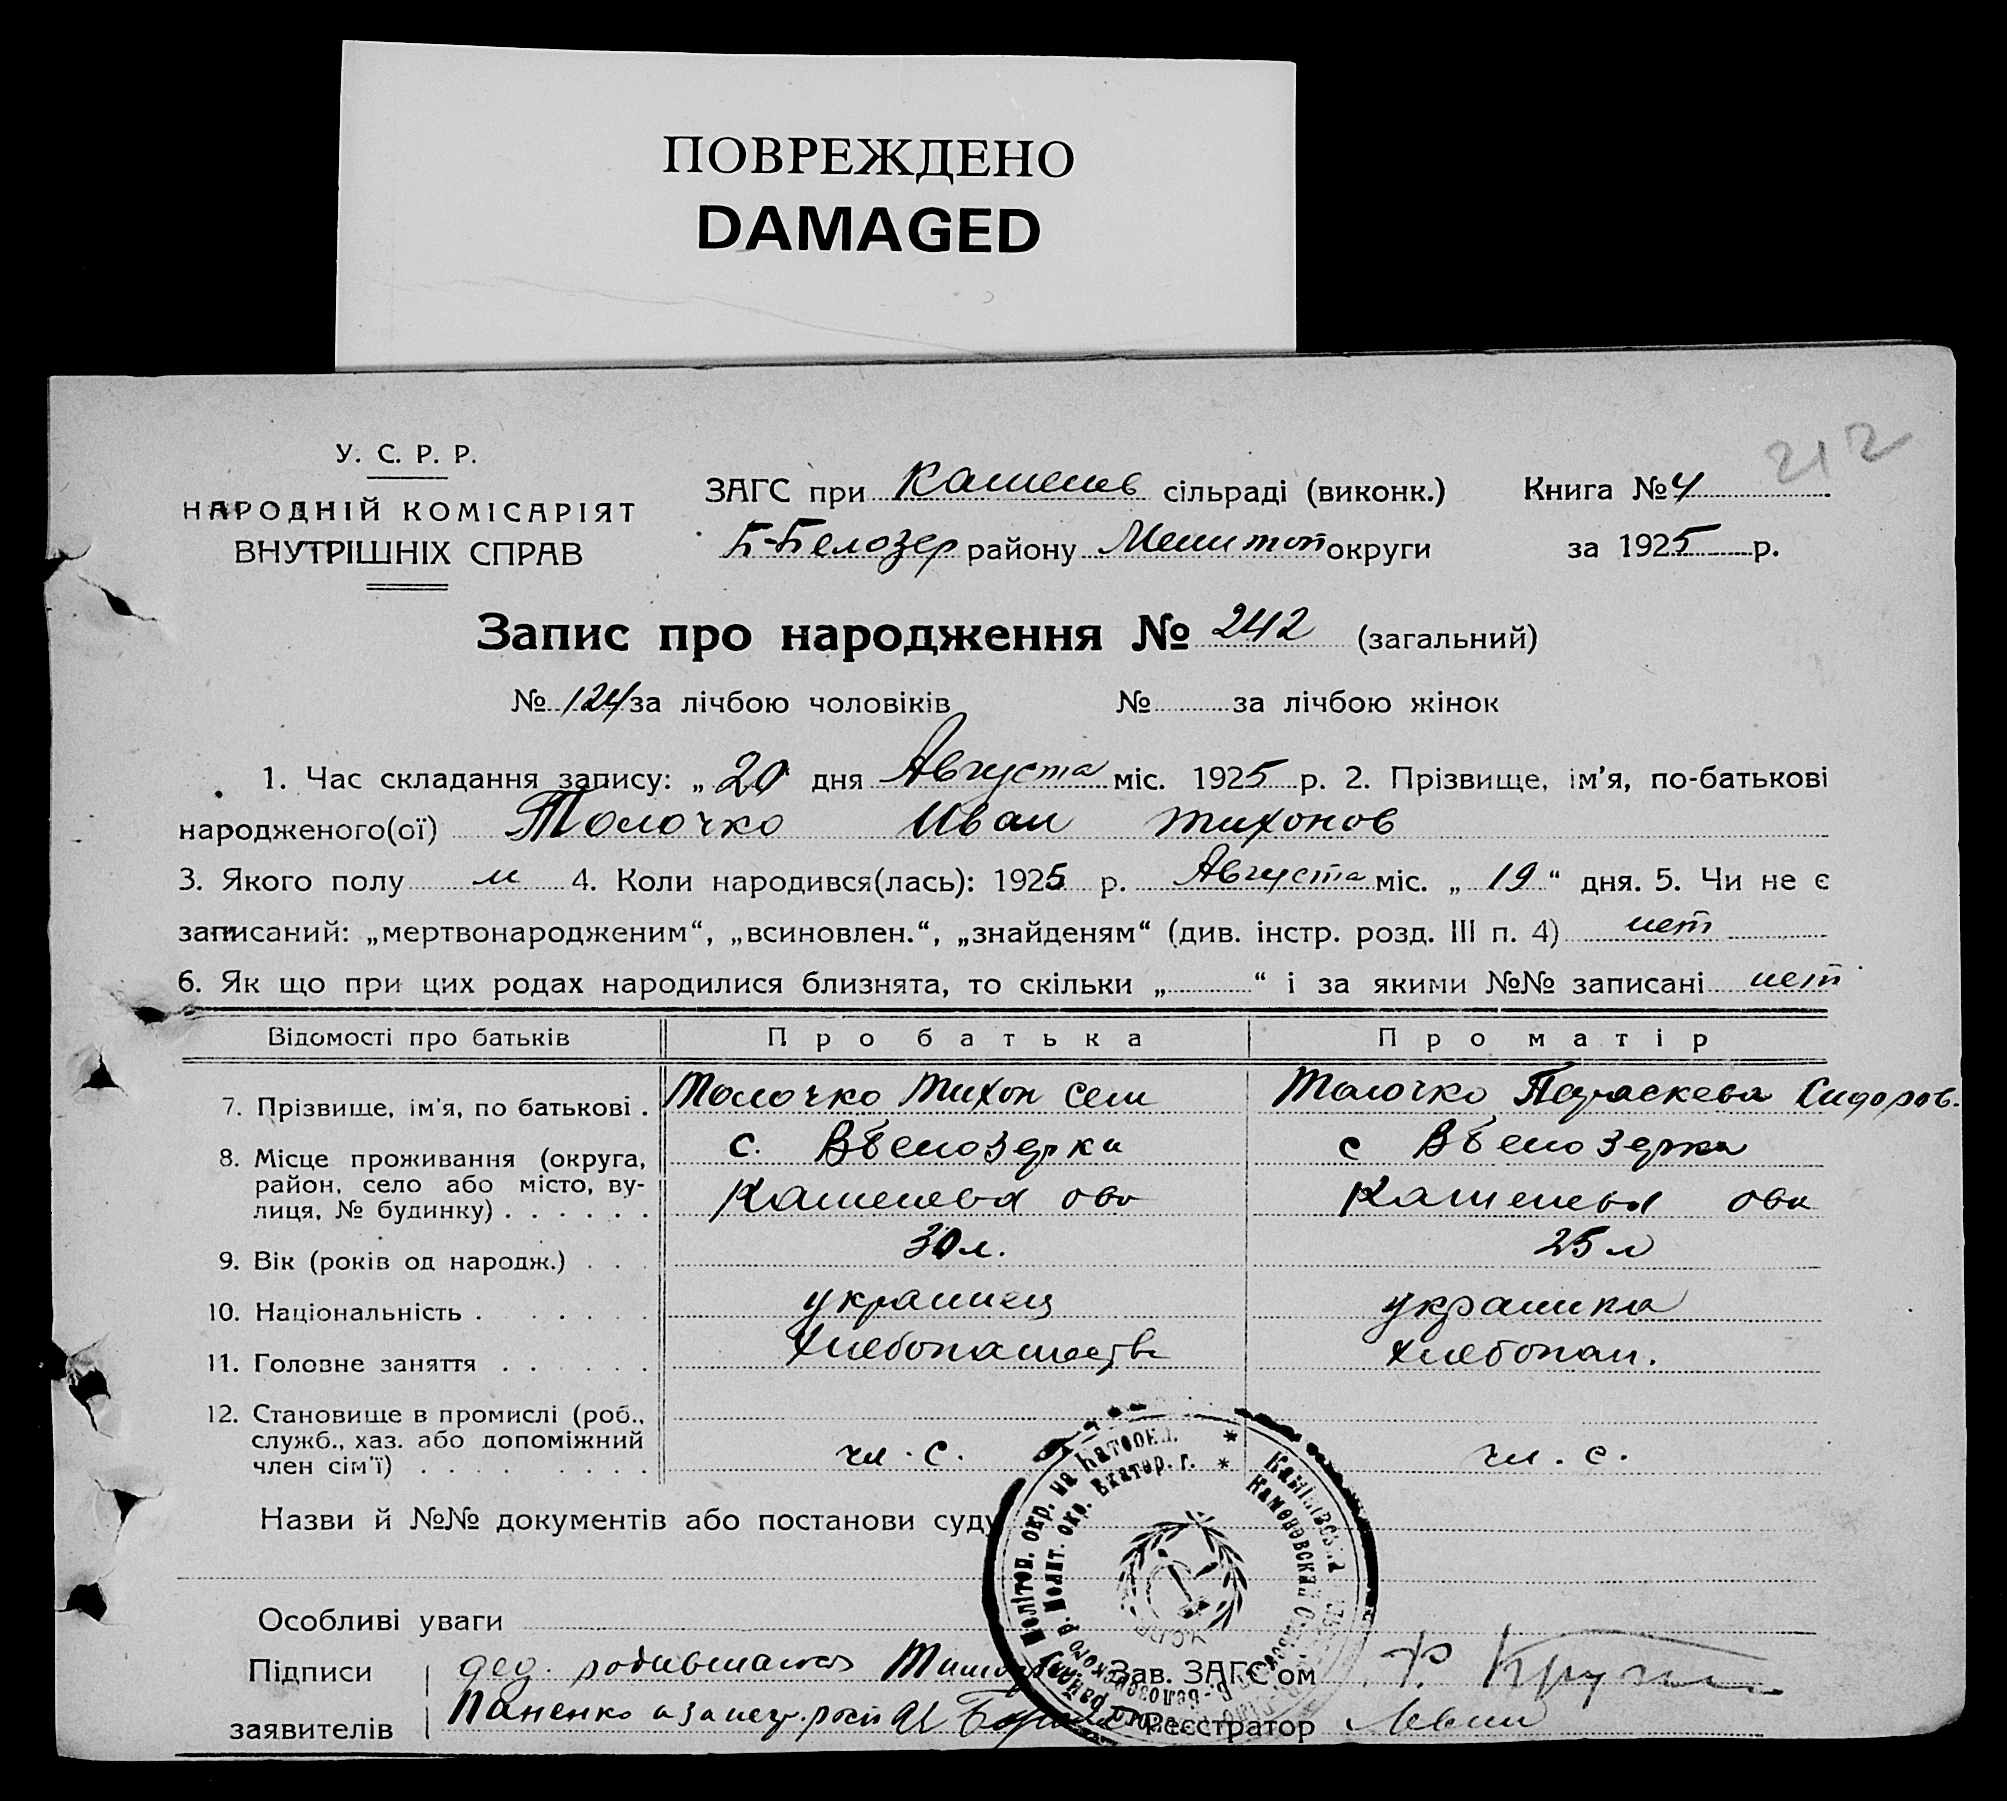 ПОВРЕЖДЕНО
DAMAGED
212
У. С. Р. Р.
НАРОДНІЙ КОМІСАРІЯТ
ВНУТРІШНІХ СПРАВ
ЗАГС при Каменев сільраді (виконк.) Книга № 4
Б-Белозер району Мелитоп округи за 1925 р.
Запис про народження № 242 (загальний)
№ 124 за лічбою чоловіків № за лічбою жінок
1. Час складання запису: „ 20 дня Августа міс. 1925 р. 2. Прізвище, ім'я, по-батькові
народженого(ої) Толочко Иван Тихонов
3. Якого полу м 4. Коли народився(лась): 1925 р. Августа міс. „ 19 “ дня. 5. Чи не є
записаний: „мертвонародженим“, „всиновлен.“, „знайденям“ (див. інстр. розд. III п. 4) нет
6. Як що при цих родах народилися близнята, то скільки „ “ і за якими №№ записані нет
Відомості про батьків Про батька Про матір
7. Прізвище, ім'я, по батькові . Толочко Тихон Сем Толочко Параскева Сидоров.
8. Місце проживання (округа, с. ВБелозерка с ВБелозерка
район, село або місто, ву-
лиця, № будинку) . . . . . . Каменева ова Каменева ова
9. Вік (років од народж.) . . . 30 л. 25 л
10. Національність . . . . . . украинец украинка
11. Головне заняття . . . . . Хлебопашеств хлебопаш.
12. Становище в промислі (роб.,
служб., хаз. або допоміжний чл. с. чл. с.
член сім'ї) . . . . . . .
Назви й №№ документів або постанови суду
Особливі уваги
Підписи дед. родившагося Зав. ЗАГС'ом
заявителів Паненко а за негр. росп И Реєстратор Левин